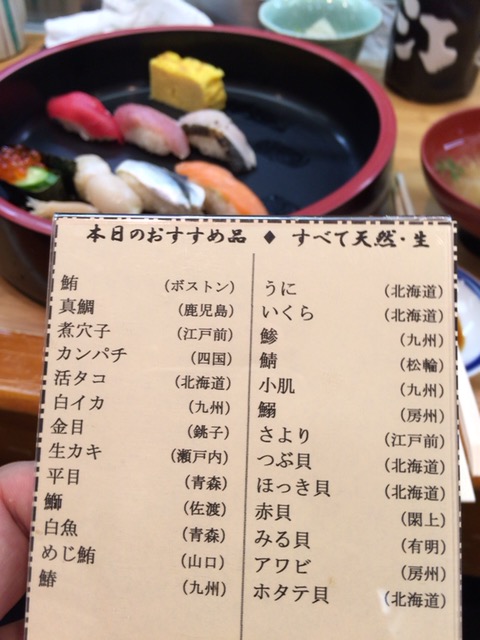 江
本日のおすすめ品 ♦ すべて天然・生
鮪 (ボストン)
真鯛 (鹿児島)
煮穴子 (江戸前)
カンパチ (四国)
活タコ (北海道)
白イカ (九州)
金目 (銚子)
生カキ (瀬戸内)
平目 (青森)
鰤 (佐渡)
白魚 (青森)
めじ鮪 (山口)
鰆 (九州)
うに (北海道)
いくら (北海道)
鯵 (九州)
鯖 (松輪)
小肌 (九州)
鰯 (房州)
さより (江戸前)
つぶ貝 (北海道)
ほっき貝 (北海道)
赤貝 (閖上)
みる貝 (有明)
アワビ (房州)
ホタテ貝 (北海道)